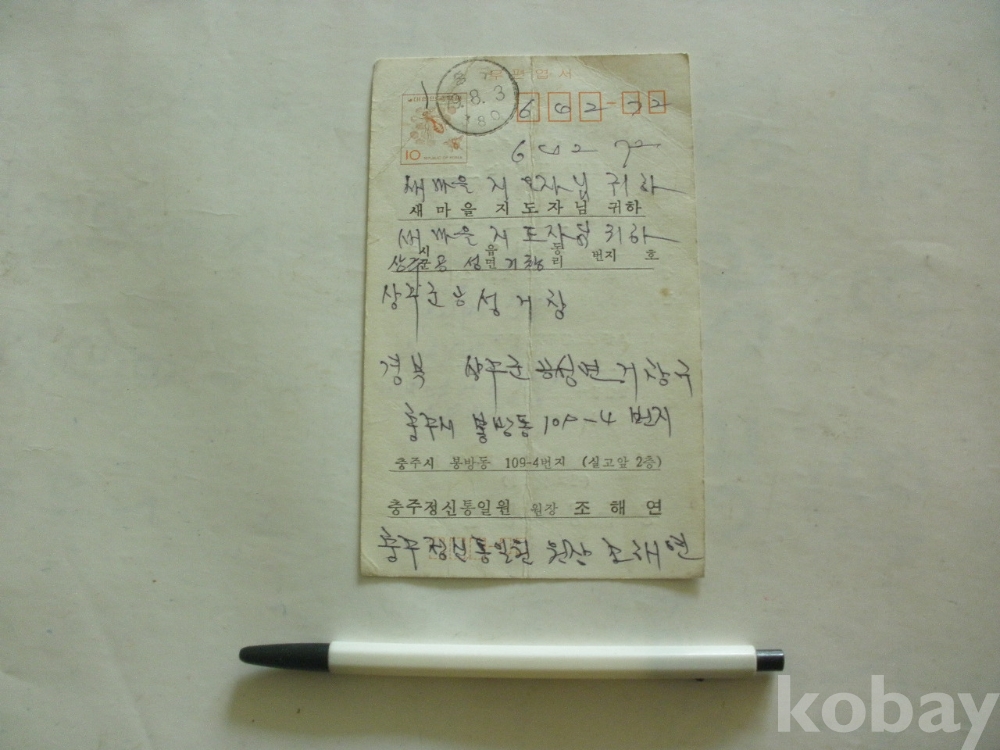 우편엽서
8. 3
180
10
6 4 2 - 7 2
6 4 2 7 2
새마을 지도자님 귀하
새마을 지도자님 귀하
새마을 지도자님 귀하
시 읍 동
상주군 공성면 거창리 번지 호
상주군 공성 거창
경북 상주군 공성면 거창리
충주시 봉방동 109-4 번지
충주시 봉방동 109-4번지 (실고앞 2층)
충주정신통일원 원장 조해연
충주정신통일원 원장 조해연
kobay